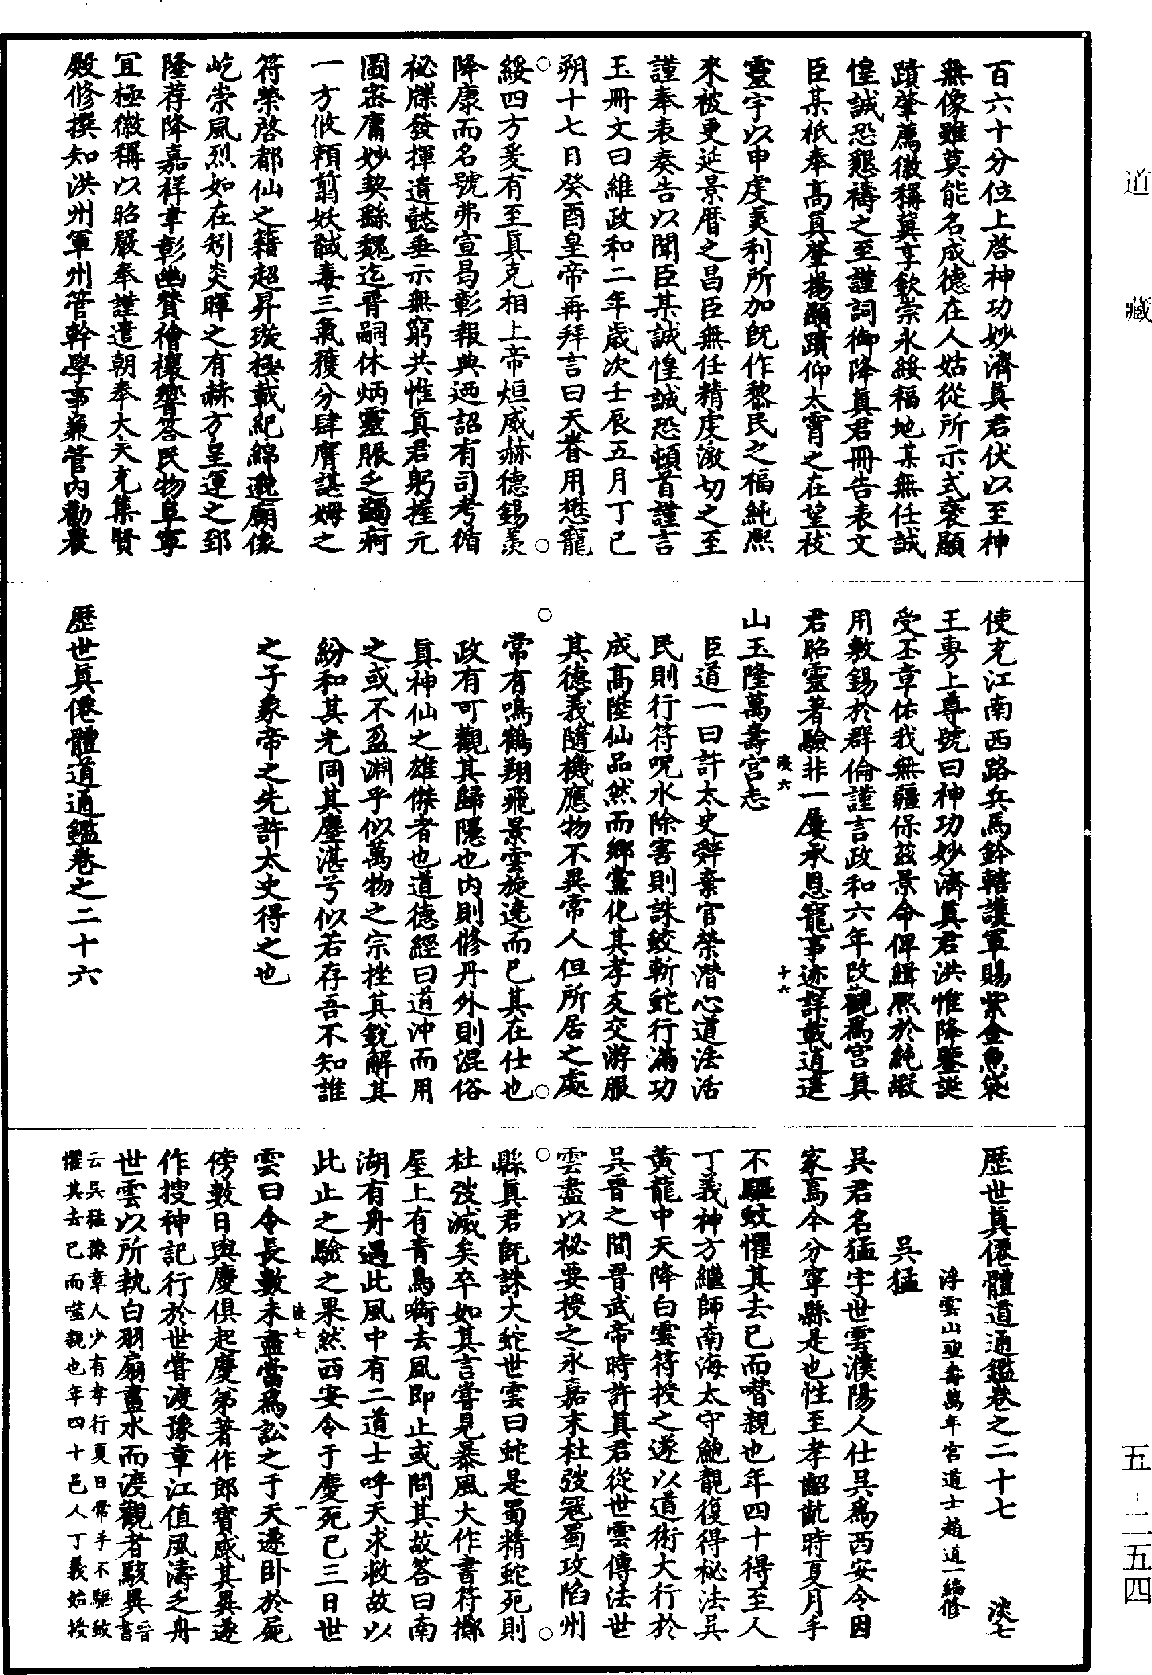 道藏
五—二五四
百六十分位上啓神功妙濟眞君伏以至神
無像雖莫能名成德在人姑從所示式褒顯
蹟肇薦徽稱冀享欽崇永綏福地某無任誠
惶誠恐懇禱之至謹詞御降眞君冊告表文
臣某祇奉高眞肇揚顯蹟仰太霄之在望枝
靈宇以申虔奠利所加旣作黎民之福純熙
來被更延景曆之昌臣無任精虔激切之至
謹奉表奏告以聞臣某誠惶誠恐頓首謹言
玉冊文曰維政和二年歲次壬辰五月丁巳
朔十七日癸酉皇帝再拜言曰天眷用懋寵
綏四方爰有至眞克相上帝烜威赫德錫羨
降康而名號弗宣曷彰報典迺詔有司考循
祕牒發揮遺懿垂示無窮共惟眞君躬握元
圖密庸妙契繇魏迄晉嗣休炳靈賑乏蠲痾
一方攸賴翦妖馘毒三氣獲分肆膺諶姆之
符榮啓都仙之籍超昇璇極載紀綿邈廟像
屹崇風烈如在矧炎暉之有赫方皇運之郅
隆荐降嘉祥聿彰幽贊禬禳響答民物阜寧
宜極徽稱以昭嚴奉謹遣朝奉大夫充集賢
殿修撰知洪州軍州管幹學事兼管內勸農
使充江南西路兵馬鈐轄護軍賜紫金魚袋
王専上尊號曰神功妙濟眞君洪惟降鑒誕
受丕章佑我無疆保茲景命俾緝熙於純嘏
用敷錫於群倫謹言政和六年改觀爲宮眞
君昭靈著驗非一屢承恩寵事迹詳載逍遙
山玉隆萬壽宮志
淡六
十六
臣道一曰許太史辭棄官榮潛心道法活
民則行符呪水除害則誅蛟斬蛇行滿功
成高陞仙品然而鄉黨化其孝友交游服
其德義隨機應物不異常人但所居之處
常有鳴鶴翔飛景雲旋遶而已其在仕也
政有可觀其歸隱也內則修丹外則混俗
眞神仙之雄傑者也道德經曰道沖而用
之或不盈淵乎似萬物之宗挫其銳解其
紛和其光同其塵湛兮似若存吾不知誰
之子象帝之先許太史得之也
歷世眞僊體道通鑑卷之二十六
歷世眞僊體道通鑑卷之二十七
淡七
浮雲山聖壽萬年宮道士趙道一編修
吳猛
吳君名猛字世雲濮陽人仕吳爲西安令因
家焉今分寧縣是也性至孝齠齓時夏月手
不驅蚊懼其去己而噆親也年四十得至人
丁義神方繼師南海太守鮑靚復得秘法吳
黃龍中天降白雲符授之遂以道術大行於
吳晉之間晉武帝時許眞君從世雲傳法世
雲盡以秘要授之永嘉末杜弢寇蜀攻陷州
縣眞君旣誅大蛇世雲曰蛇是蜀精蛇死則
杜弢滅矣卒如其言嘗見暴風大作書符擲
屋上有青鳥啣去風即止或問其故答曰南
湖有舟遇此風中有二道士呼天求救故以
此止之驗之果然西安令于慶死已三日世
淡七
一
雲曰令長數未盡當爲訟之于天遂卧於屍
傍數日與慶俱起慶弟著作郎寶感其異遂
作搜神記行於世嘗渡豫章江值風濤乏舟
世雲以所執白羽扇畫水而渡觀者駭異晉書
云吳猛豫章人少有孝行夏日常手不驅蚊
懼其去己而噬親也年四十邑人丁義始授